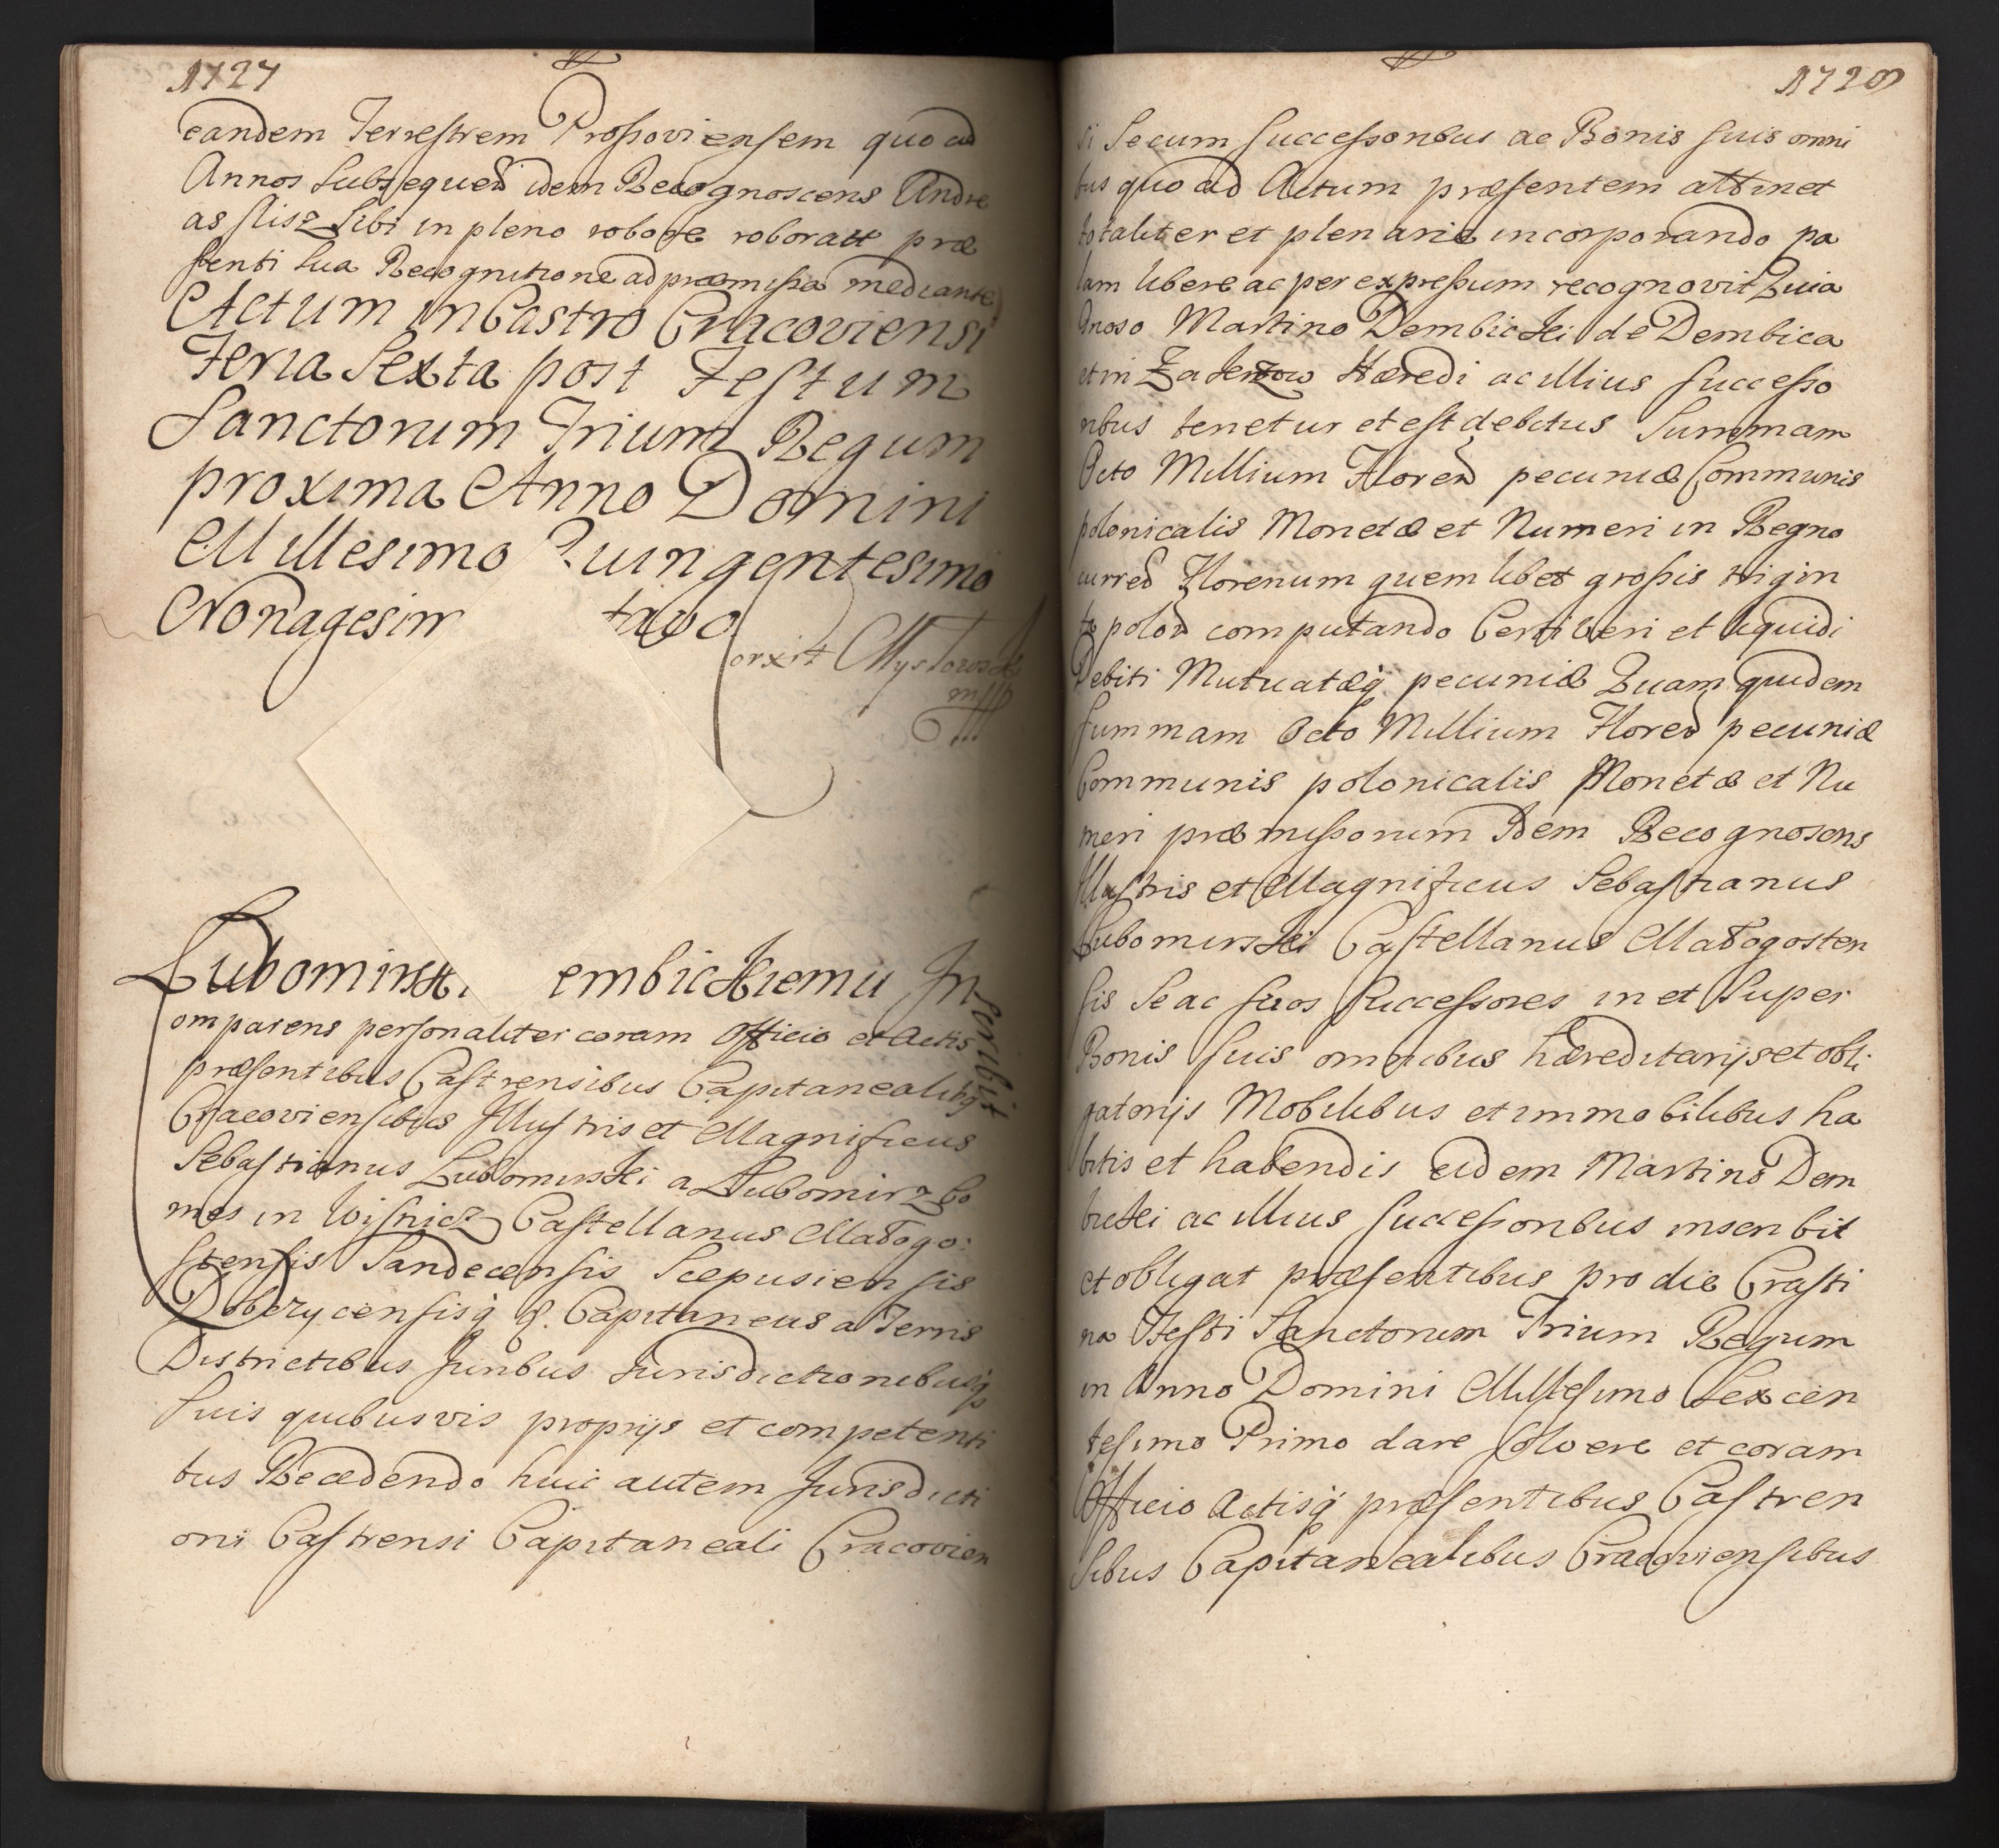 1727
eandem Terrestrem Prossoviensem quo ad
Annos subsequen idem Recognoscens Andre
as sibi in pleno robore roborat præ
senti sua Recognitione ad præmissa mediante
Actum in Castro Cracoviensi
Feria Sexta post Festum
Sanctorum Trium Regum
proxima Anno Domini
Millesimo Quingentesimo
Nonagesim tavo
mpp
Lubomirski embickiemu In
scribit
omparens personaliter coram Officio et Actis
præsentibus Castrensibus Capitanealibq
Cracoviensibus Illustris et Magnificus
Sebastianus Lubomirski a Lubomirz Co
mes in Wisnicz Castellanus Małogo:
stensis Sandecensis Scepusiensis
Dobczycensisq g. Capitaneus a Terris
Districtibus Juribus Jurisdictionibusq
suis quibusvis proprijs et competenti
bus Recedendo huic autem Jurisdicti
oni Castrensi Capitaneali Cracovien
1728
si Secum successoribus ac Bonis suis omni
bus quo ad Actum præsentem attinet
totaliter et plenarie incorporando pa
lam libere ac per expressum recognovit Quia
Gnoso Martino Dembicki de Dembica
et in Hæredi ac illius successo
ribus tenetur et est debitus Summam
Octo Millium Floren pecuniæ Communis
polonicalis Monetæ et Numeri in Regno
curren Florenum quem libet grossis trigin
ta polon computando Certi veri et liquidi
Debiti Mutuatæq pecuniæ Quam quidem
summam Octo Millium Floren pecuniæ
Communis polonicalis Monetæ et Nu
meri præmissorum Idem Recognoscens
Illustris et Magnificus Sebastianus
Lubomirski Castellanus Małogosten
sis Se ac suos successores in et super
Bonis suis omnibus hæreditarijs et obli
gatorijs Mobilibus et immobilibus ha
bitis et habendis eidem Martino Dem
bicki ac illius successoribus inscribit
et obligat præsentibus pro die Crasti
na Festi Sanctorum Trium Regum
in Anno Domini Millesimo Sexcen
tesimo Primo dare solvere et coram
Officio Actisq præsentibus Castren
sibus Capitanealibus Cracoviensibus